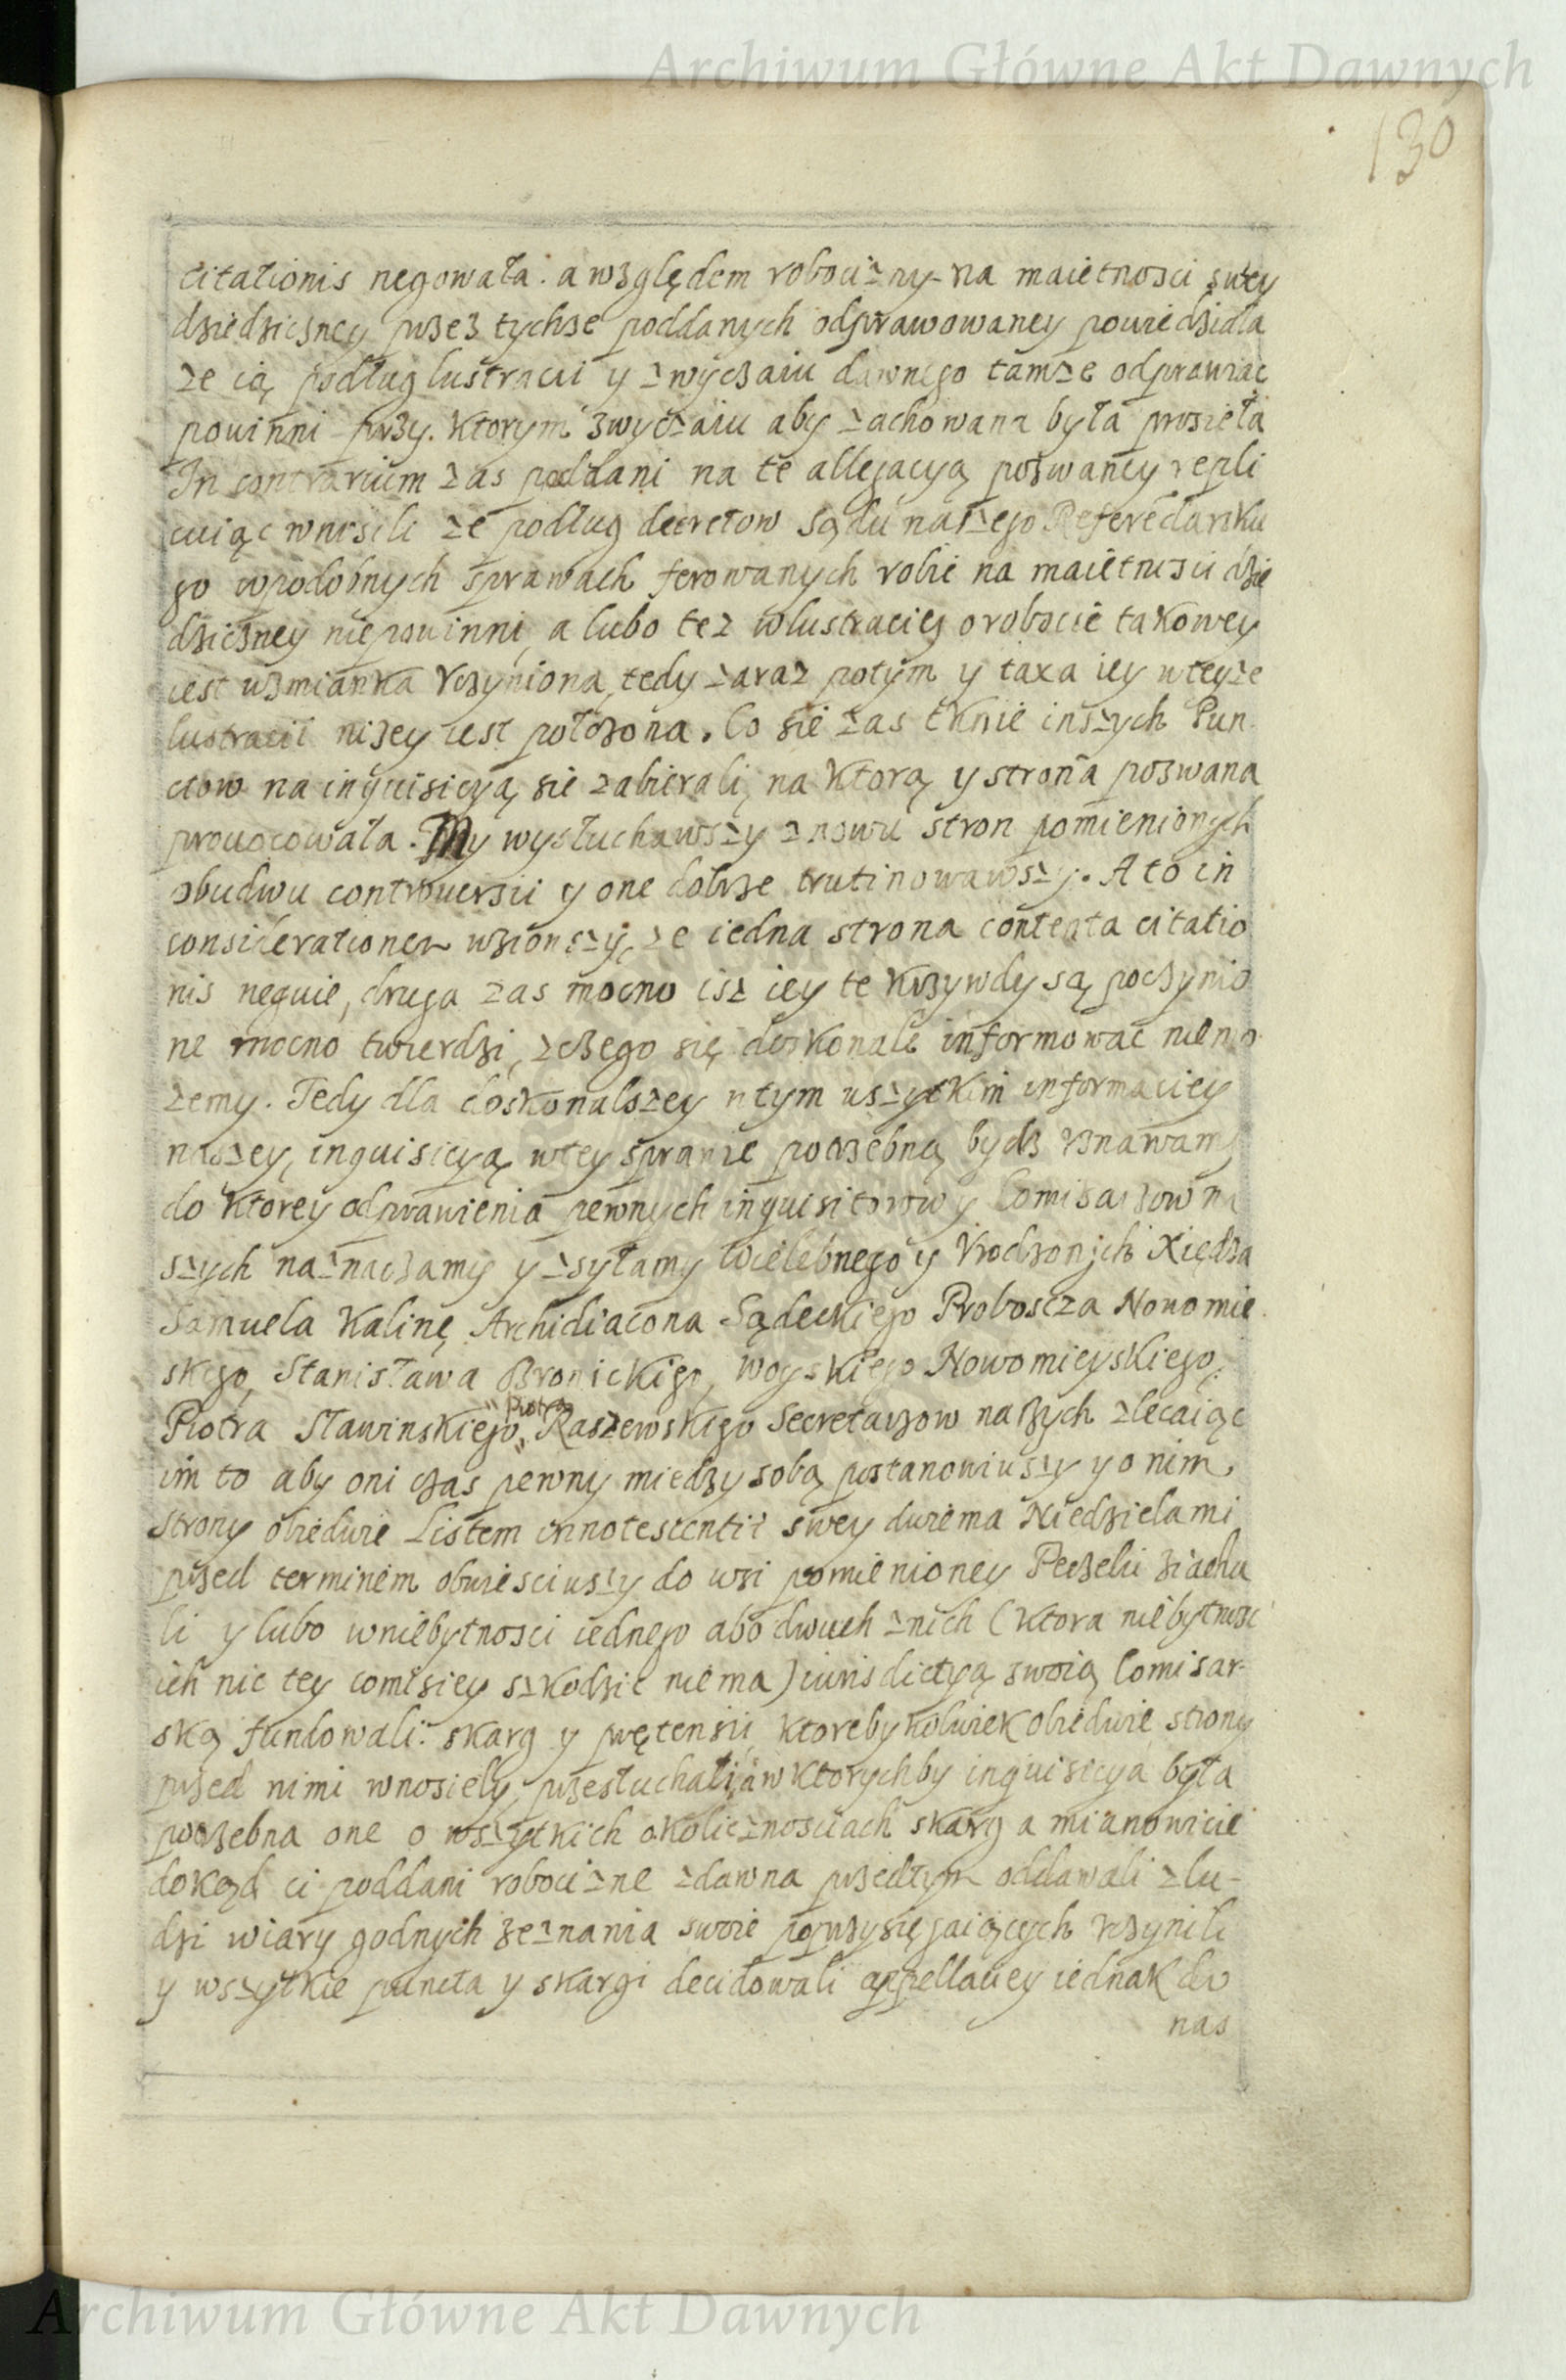 Archiwum Główne Akt Dawnych
130
citationis negowała. a względem robocizny na maiętnosci swey
dziedziczney przez tychze poddanych odprawowaney powiedziała
ze ią podług lustracii y zwyczaiu dawnego tamze odprawiac
powinni przy. Ktorym zwyczaiu aby zachowana była prosieła
In contrarium zas poddani na te allegacyą pozwaney repli
cuiąc wnosili ze podług decretow Sądu naszego Referędarsku
go wpodobnych sprawach ferowanych robić na maiętnosci dzie
dziczney niepowinni, a lubo tez wlustraciey o robocie takowey
iest wzmianka Vczyniona, tedy zaraz potym y taxa iey wteyze
lustracii nizey iest położona. Co sie zas tknie inszych Pun
ctow na inquisicyą sie zabierali, na Ktorą y strona pozwana
prouocowała. My wysłuchawszy znowu stron pomienionych
obudwu controuersii y one dobrze trutinowawszy. A to in
considerationem wziąwszy, ze iedna strona contenta citatio
nis neguie, druga zas mocno isz iey te Krzywdy są poczynio
ne mocno twierdzi, zczego się doskonale informowac niemo
zemy. Tedy dla doskonalszey wtym wszytkim informaciey
naszey, inquisicyą wtey sprawie potrzebną bydz Vznawamy
do Ktorey odprawienia pewnych inquisitorow y Comisarzow na
szych naznaczamy y zsyłamy Wielebnego y Vrodzonych Xiędza
Samuela Kalinę Archidiacona Sądeckiego Proboscza Nowomie
skego, Stanisława Bronickigo, Woyskiego Nowomieyskiego,
Piotra
Piotra Sławinskiego, Raszewskigo Secretarzow naszych zlecaiąc
im to aby oni czas pewny miedzy sobą postanowiwszy y o nim
strony obiedwie Listem innotescentii swey dwiema Niedzielami
przed terminem obwiesciwszy do wsi pomienioney Peczelic ziachu
li y lubo wniebytnosci iednego abo dwuch znich (Ktora niebytnosc
ich nic tey comisiey szkodzic niema) iurisdictyą swoią Comisar-
ską fundowali. skarg y prętensii Ktorebykolwiek obiedwie strony
przed nimi wnosieły, przesłuchali, a w Ktorychby inquisicya była
potrzebna one o wszytkich okolicznosciach skarg a mianowicie
dokąd ci poddani robocizne zdawna przedtym oddawali zlu-
dzi wiary godnych zeznania swoie poprzysięgaiących Vczynili
y wszytkie puncta y skargi decidowali appellaciey iednak do
nas
Archiwum Główne Akt Dawnych